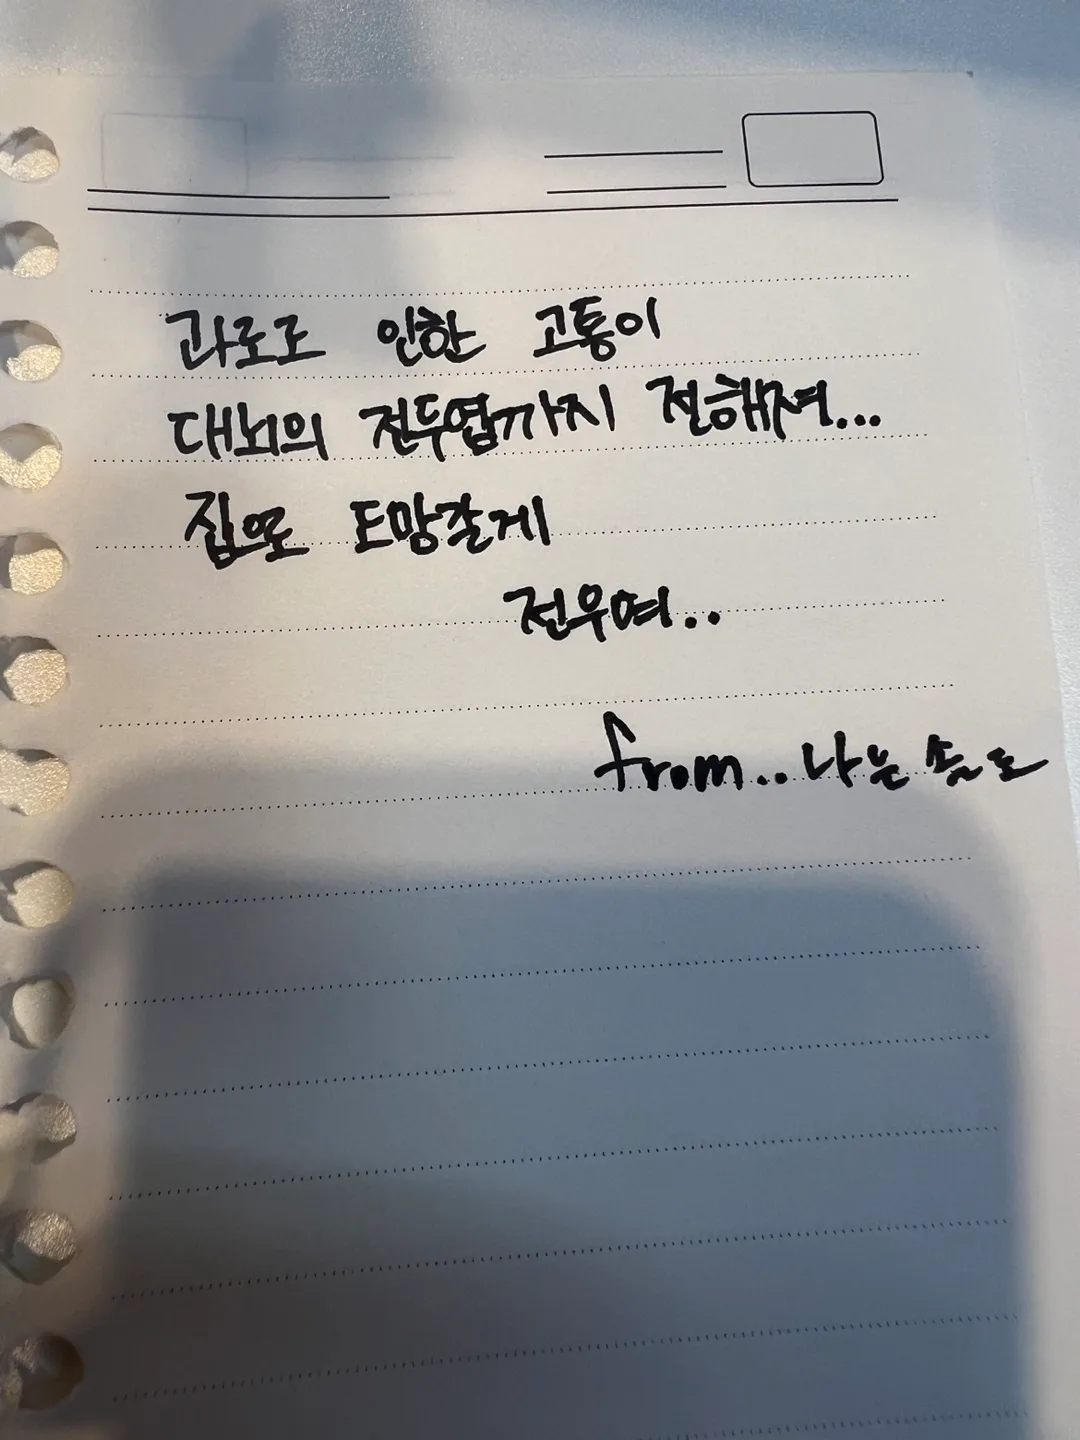 과로로 인한 고통이
대뇌의 전두엽까지 전해져...
집으로 도망갈게
전우여..
from.. 나는솔로